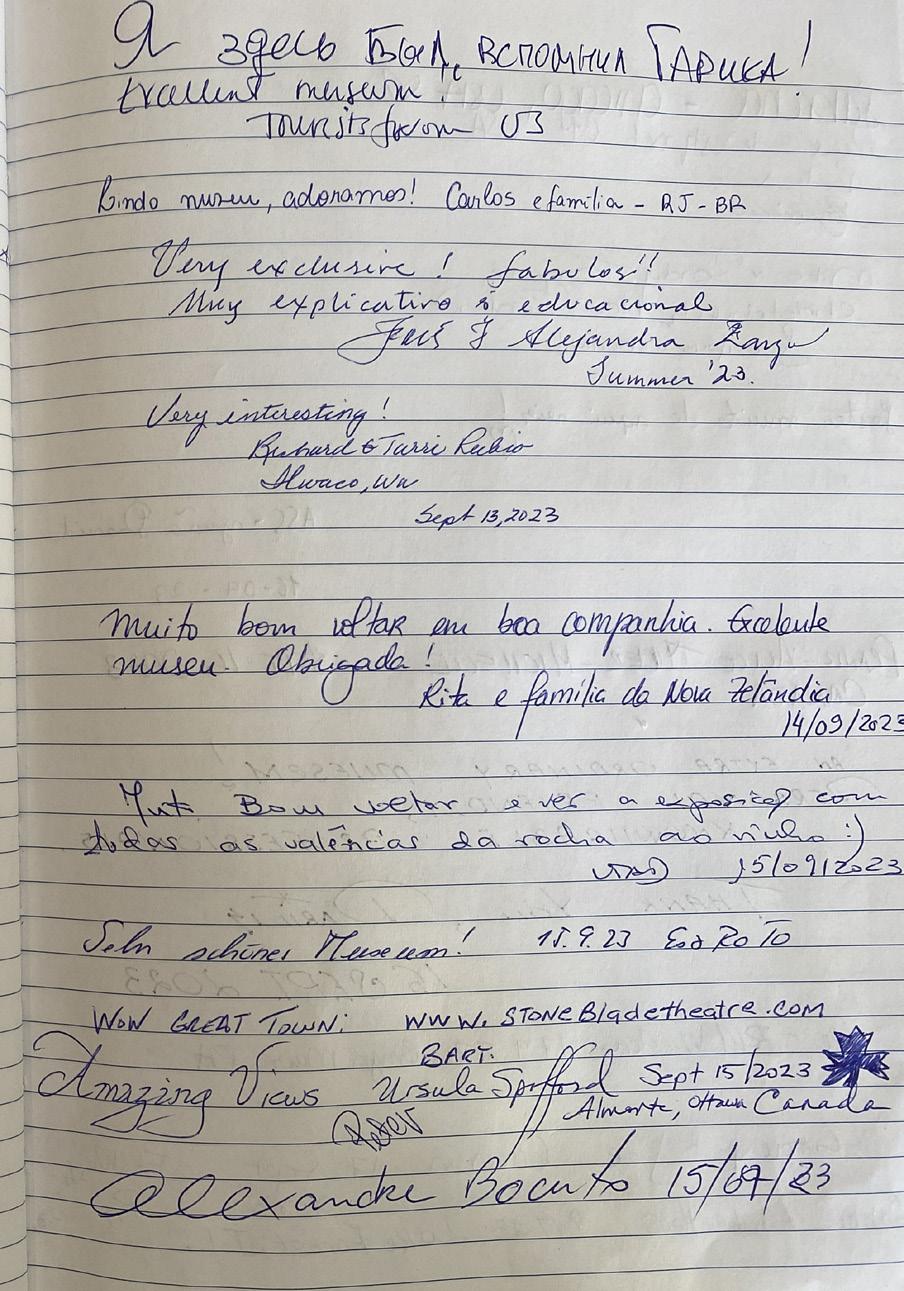 Я здесь был, вспомнил Гарика!
Excellent museum!
Tourists from
Lindo museu, adoramos! Carlos e família - RJ - BR
Very exclusive! fabulos!!
Muy explicativo & educacional
Alejandra
Summer '23.
Very interesting!
Richard & Terri Rubio
Ilwaco, Wa
Sept 13, 2023
Muito bom voltar em boa companhia. Excelente
museu. Obrigada!
Rita e família da Nova Zelândia
14/09/2023
Bom voltar e ver a com
todas as valências da rocha ao vinho :)
15/09/2023
Sehr schönes Museum! 15.9.23
WOW GREAT TOWN: WWW.STONEBladetheatre.com
BART.
Amazing Views Ursula Sept 15/2023
Peter Almonte, Ottawa Canada
Alexandre 15/09/23